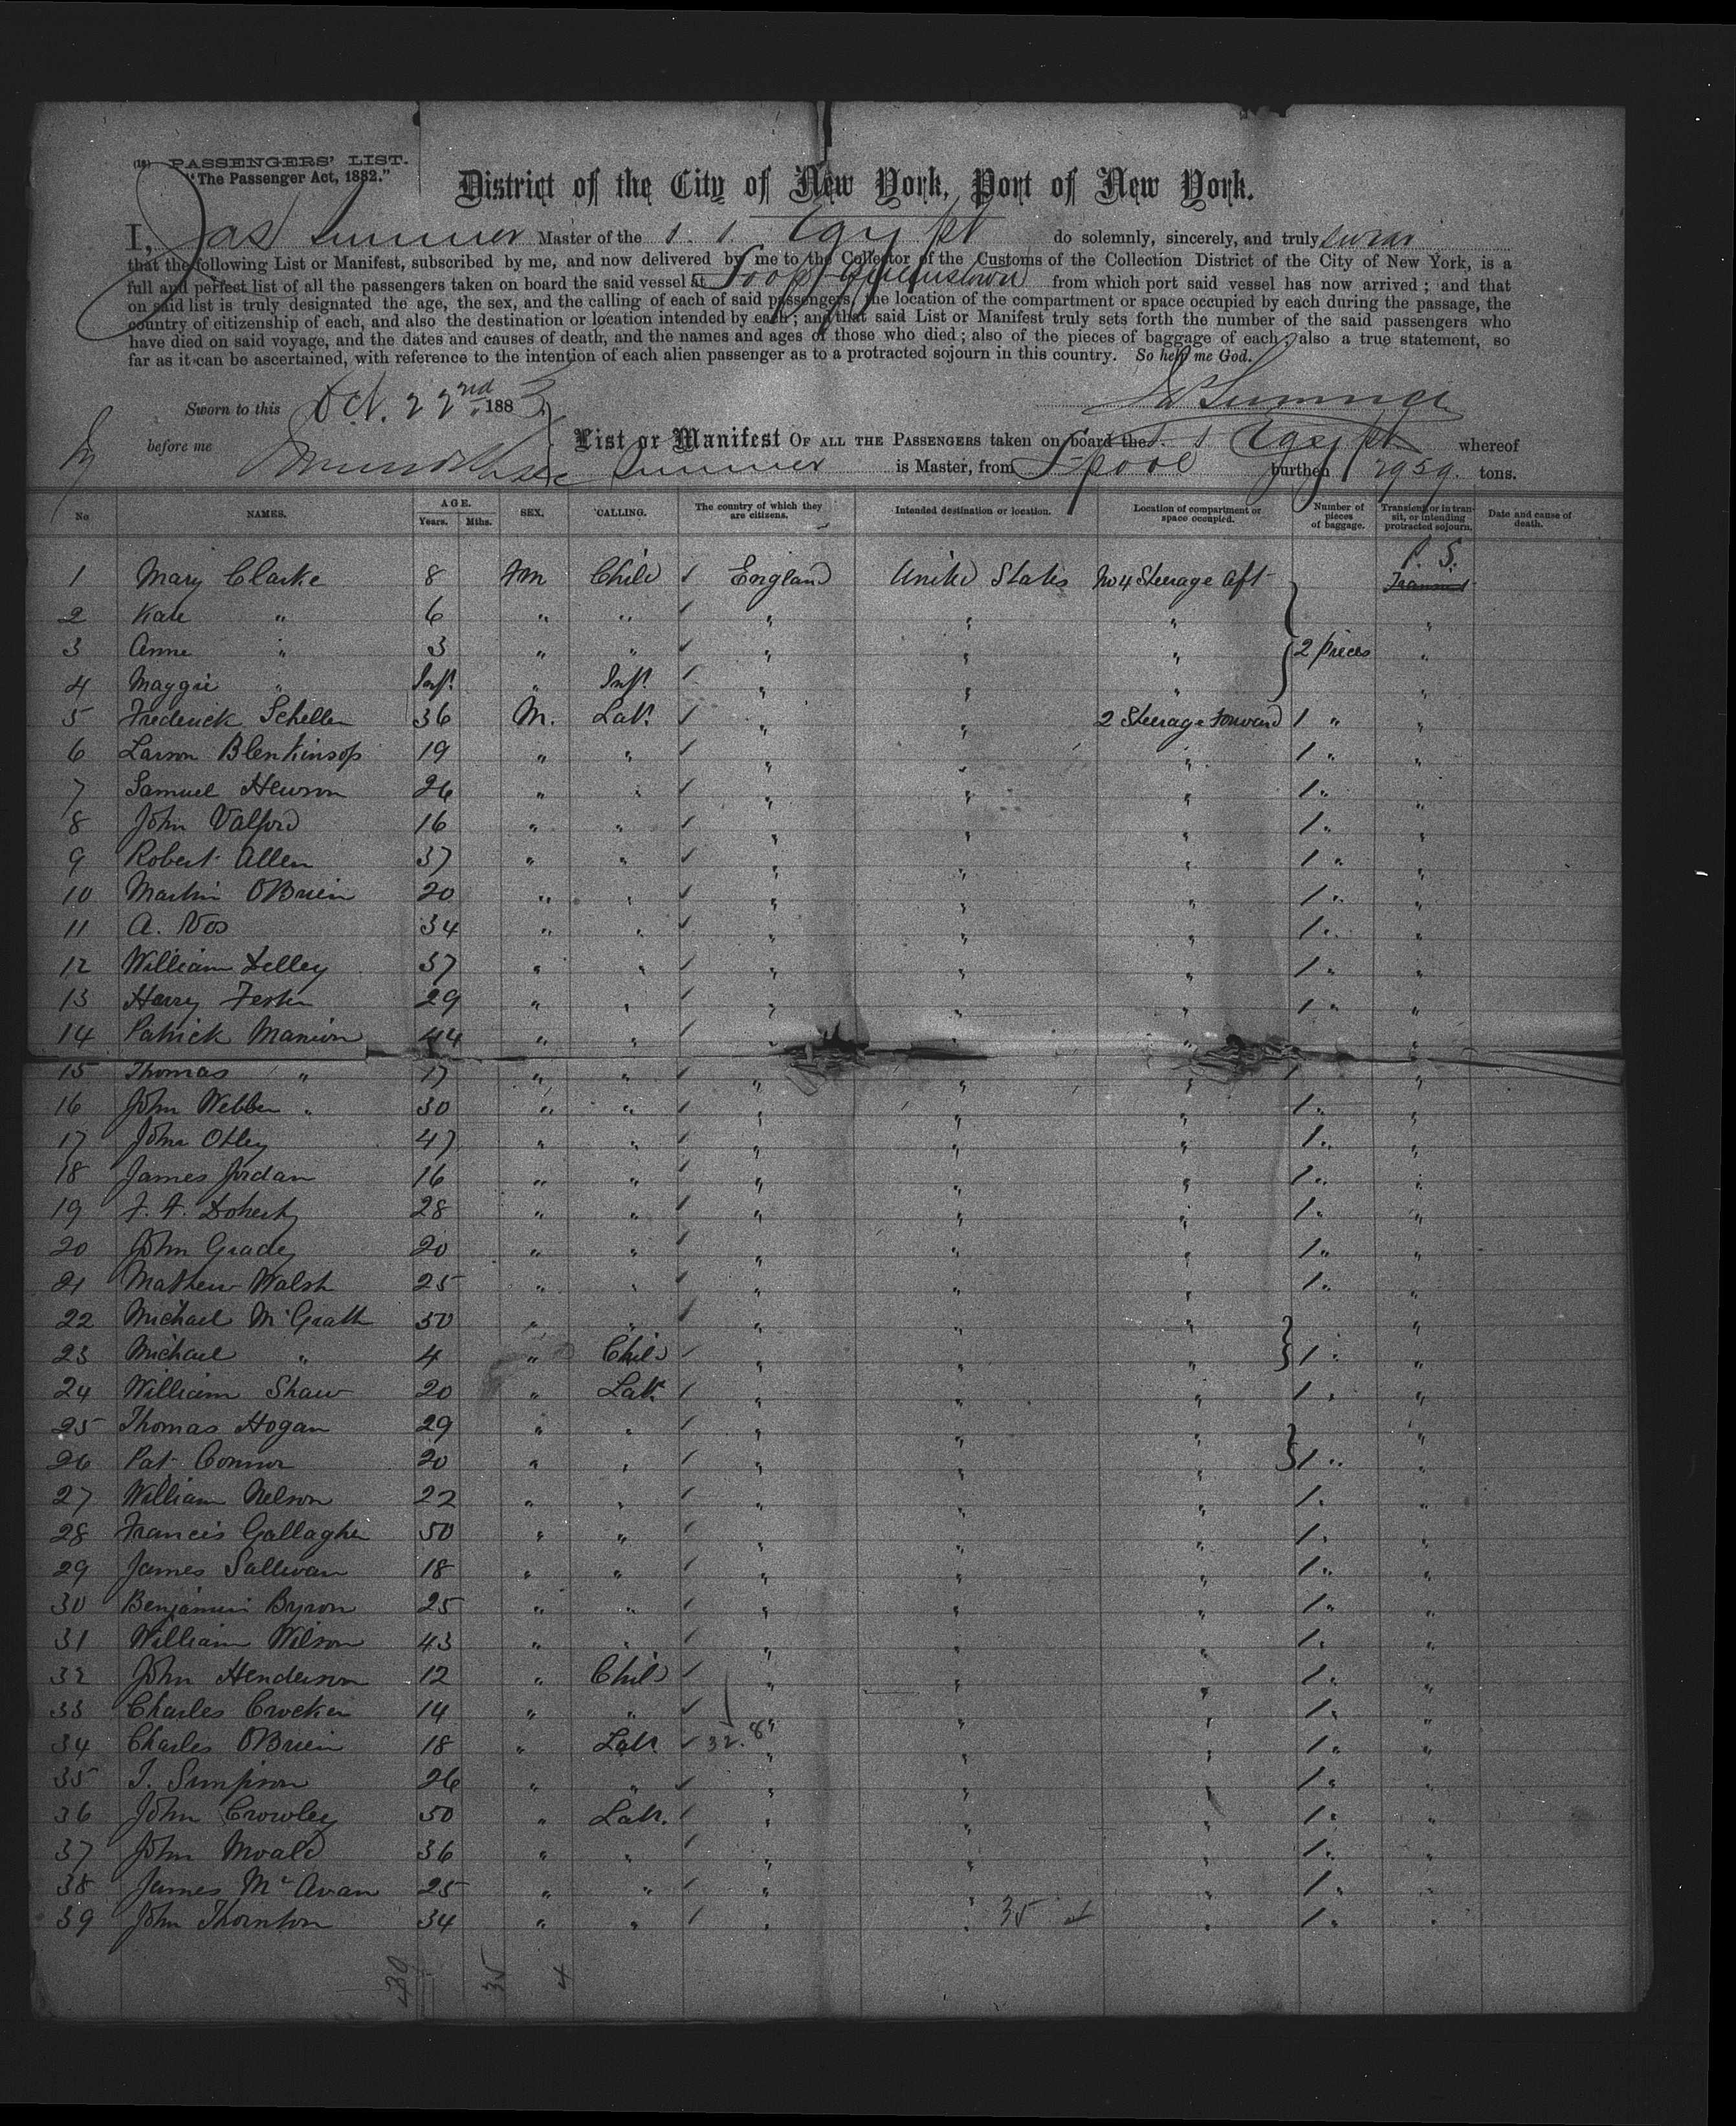 (18) PASSENGERS' LIST.
"The Passenger Act, 1882."
District of the City of New York, Port of New York.
I, Jas Sumner Master of the s. s. Egypt do solemnly, sincerely, and truly swear
that the following List or Manifest, subscribed by me, and now delivered by me to the Collector of the Customs of the Collection District of the City of New York, is a
full and perfect list of all the passengers taken on board the said vessel at L'pool & Queenstown from which port said vessel has now arrived; and that
on said list is truly designated the age, the sex, and the calling of each of said passengers, the location of the compartment or space occupied by each during the passage, the
country of citizenship of each, and also the destination or location intended by each; and that said List or Manifest truly sets forth the number of the said passengers who
have died on said voyage, and the dates and causes of death, and the names and ages of those who died; also of the pieces of baggage of each; also a true statement, so
far as it can be ascertained, with reference to the intention of each alien passenger as to a protracted sojourn in this country. So help me God.
Sworn to this Oct. 22nd 1883 Jas Sumner
before me
List or Manifest OF ALL THE PASSENGERS taken on board the s s Egypt whereof
Sumner is Master, from L'pool burthen 2959 tons.
No. NAMES. AGE. Years. Mths. SEX. CALLING. The country of which they are citizens. Intended destination or location. Location of compartment or space occupied. Number of pieces of baggage. Transient or in transit, or intending protracted sojourn. Date and cause of death.
P. S.
1 Mary Clarke 8 Fm Child / England United States No 4 Steerage Aft Transient
2 Kate " 6 " " / " " " "
3 Anne " 3 " " / " " " 2 Pieces "
4 Maggie " Inft. " Inft. / " " " "
5 Frederick Schellen 36 M. Lab. / " " 2 Steerage Forward 1 " "
6 Larson Blenkinsop 19 " " / " " " 1 " "
7 Samuel Hewson 26 " " / " " " 1 " "
8 John Valford 16 " " / " " " 1 " "
9 Robert Allen 37 " " / " " " 1 " "
10 Martin OBrien 20 " " / " " " 1 " "
11 A. Vos 34 " " / " " " 1 " "
12 William Dilley 37 " " / " " " 1 " "
13 Harry 29 " " / " " " 1 " "
14 Patrick Manion 44 " " / " " " "
15 Thomas " 17 " " / " " " 1 "
16 John Webber " 30 " " / " " " 1 " "
17 John Otley 47 " " / " " " 1 " "
18 James Jordan 16 " " / " " " 1 " "
19 Doherty 28 " " / " " " 1 " "
20 John Grady 20 " " / " " " 1 " "
21 Mathew Walsh 25 " " / " " " 1 " "
22 Michael McGrath 50 " " / " " " "
23 Michael " 4 " Child / " " " 1 " "
24 William Shaw 20 " Lab. / " " " 1 " "
25 Thomas Hogan 29 " " / " " " "
26 Pat Connor 20 " " / " " " 1 " "
27 William Nelson 22 " " / " " " 1 " "
28 Francis Gallagher 50 " " / " " " 1 " "
29 James Sullivan 18 " " / " " " 1 " "
30 Benjamin Byron 25 " " / " " " 1 " "
31 William Wilson 43 " " / " " " 1 " "
32 John Henderson 12 " Child / " " " 1 " "
33 Charles Crocker 14 " " / " " " 1 " "
34 Charles OBrien 18 " Labr / 32.8 " " " 1 " "
35 J. Simpson 26 " " / " " " 1 " "
36 John Crowley 50 " Labr. / " " " 1 " "
37 John Moald 36 " " / " " " 1 " "
38 James McAvan 25 " " / " " " 1 " "
39 John Thornton 34 " " / " " 35 4 " 1 " "
35 4